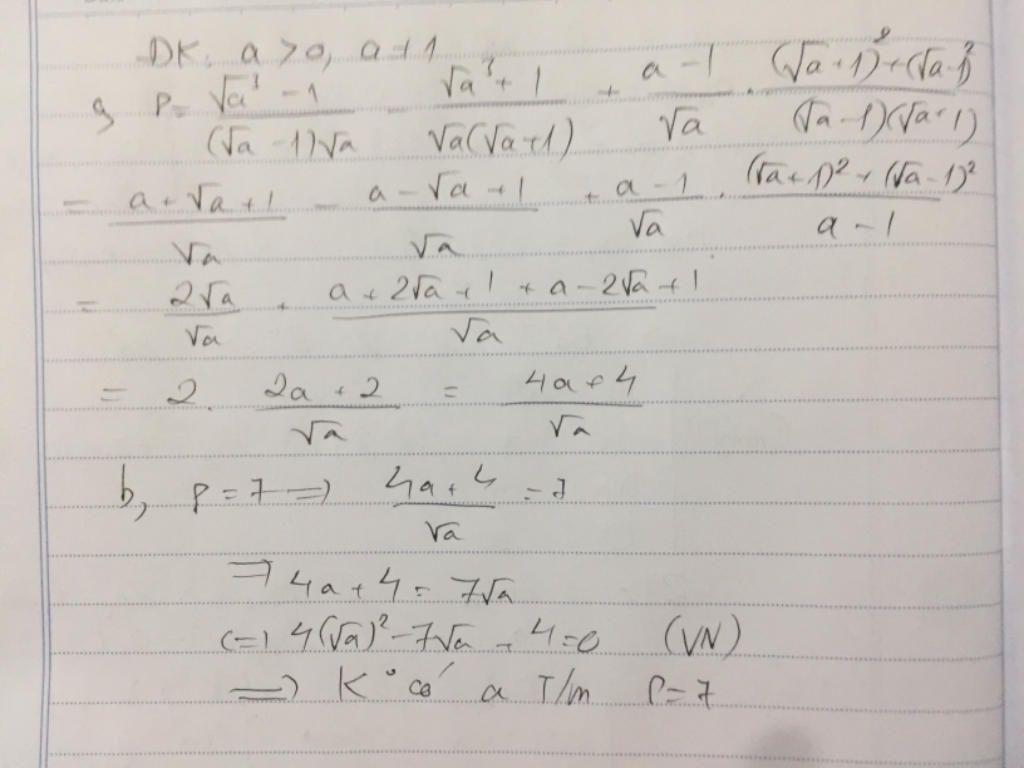 ĐK: a > 0, a ≠ 1
a, P = (√a³ - 1)/((√a - 1)√a) - (√a³ + 1)/(√a(√a + 1)) + (a - 1)/√a . ((√a + 1)² + (√a - 1)²)/((√a - 1)(√a + 1))
= (a + √a + 1)/√a - (a - √a + 1)/√a + (a - 1)/√a . ((√a + 1)² + (√a - 1)²)/(a - 1)
= 2√a/√a . (a + 2√a + 1 + a - 2√a + 1)/√a
= 2 . (2a + 2)/√a = (4a + 4)/√a
b, P = 7 => (4a + 4)/√a = 7
=> 4a + 4 = 7√a
<=> 4(√a)² - 7√a + 4 = 0 (VN)
=> K° có a T/m P = 7